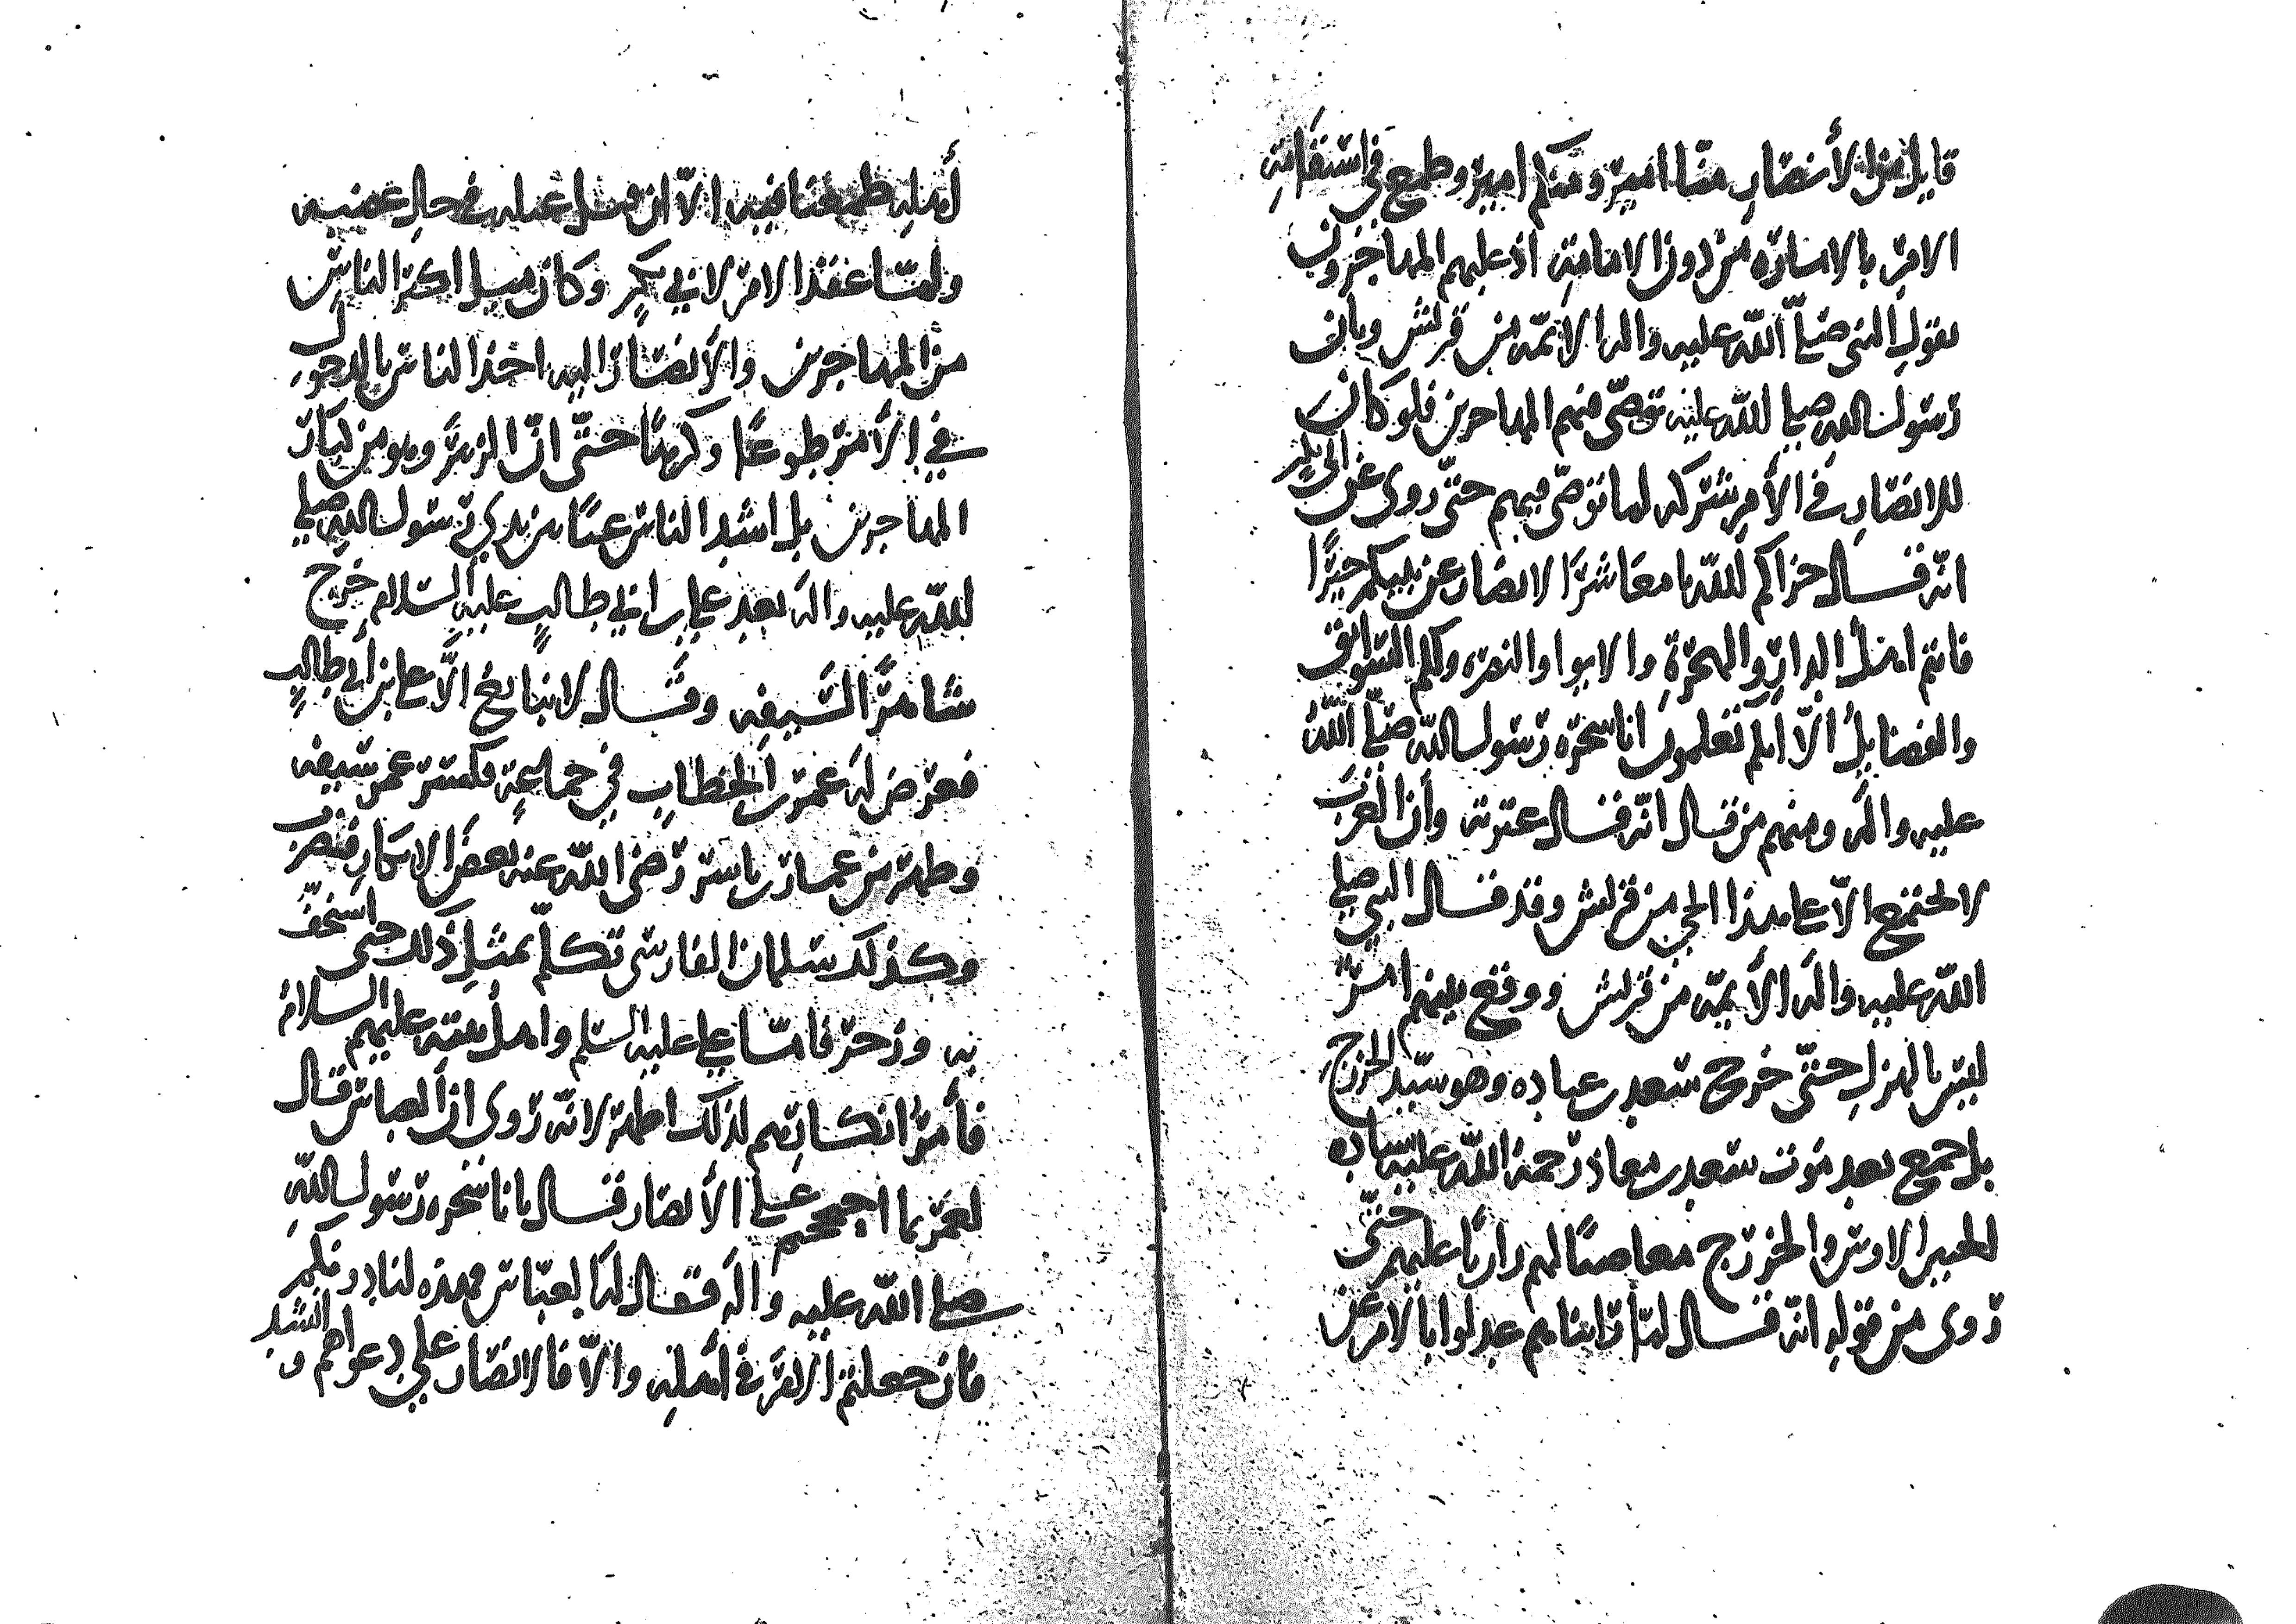 قايل من الأنصار منا امير ومنكم امير وطمع في استقامة
الامر بالامارة من دون الامامة اذ عليهم المهاجرون
بقول النبي صلى الله عليه واله الائمة من قريش وبان
رسول الله صلى الله عليه توصى منهم المهاجرين فلو كان
للانصار في الأمر شركة لما توصى فيهم حتى روي عن ابي بكر
انه قال جزاكم الله يا معاشر الانصار عن نبيكم خيرا
فانتم اهل الدار والهجرة والايوا والنصرة ولكم السوابق
والفضايل الا انكم تعلمون انا شجرة رسول الله صلى الله
عليه واله ومنهم من قال انه قال عترته وأن العرب
لا تجتمع الا على هذا الحي من قريش وقد قال النبي صلى
الله عليه واله الأيمة من قريش ووقع بينهم امر
ليس بالهزل حتى خرج سعد بن عباده وهو سيد الخزرج
بل جمع بعد موت سعد بن معاذ رحمة الله عليه سياده
الحيين الاوس والخزرج مغاضبا لهم زاريا عليهم حتى
روى من قوله انه قال لما راينا هم عدلوا بالامر عن
أهله طمعنا فيه الا ان فعله في حال غضبه
ولما عقد الامر لابي بكر وكان ميل اكثر الناس
من المهاجرين والأنصار اليه اخذ الناس بالدخول
في الأمر طوعا وكرها حتى ان الزبير وهو من كبار
المهاجرين بل اشد الناس عنا بين يدي رسول الله صلى
الله عليه واله بعد علي بن ابي طالب عليه السلام خرج
شاهرا لسيفه وقال لا نبايع الا علي بن أبي طالب
فعرض له عمر بن الخطاب في جماعة فكسر عمر سيفه
وظهر من عمار بن ياسر رضي الله عنه بعض الانكار فضرب
وكذلك سلمان الفارسي تكلم بمثل ذلك حتى استخف
به وزجر فاما علي عليه السلم واهل بيته عليهم السلام
فأمر انكارهم لذلك اظهر لانه روى ان العباس قال
لعمر بما احججتم على الأنصار فقال بانا شجره رسول الله
صلى الله عليه واله فقال له العباس فهذه لنا دونكم
فان جعلتم الامر في أهله والا فالانصار على دعواهم و